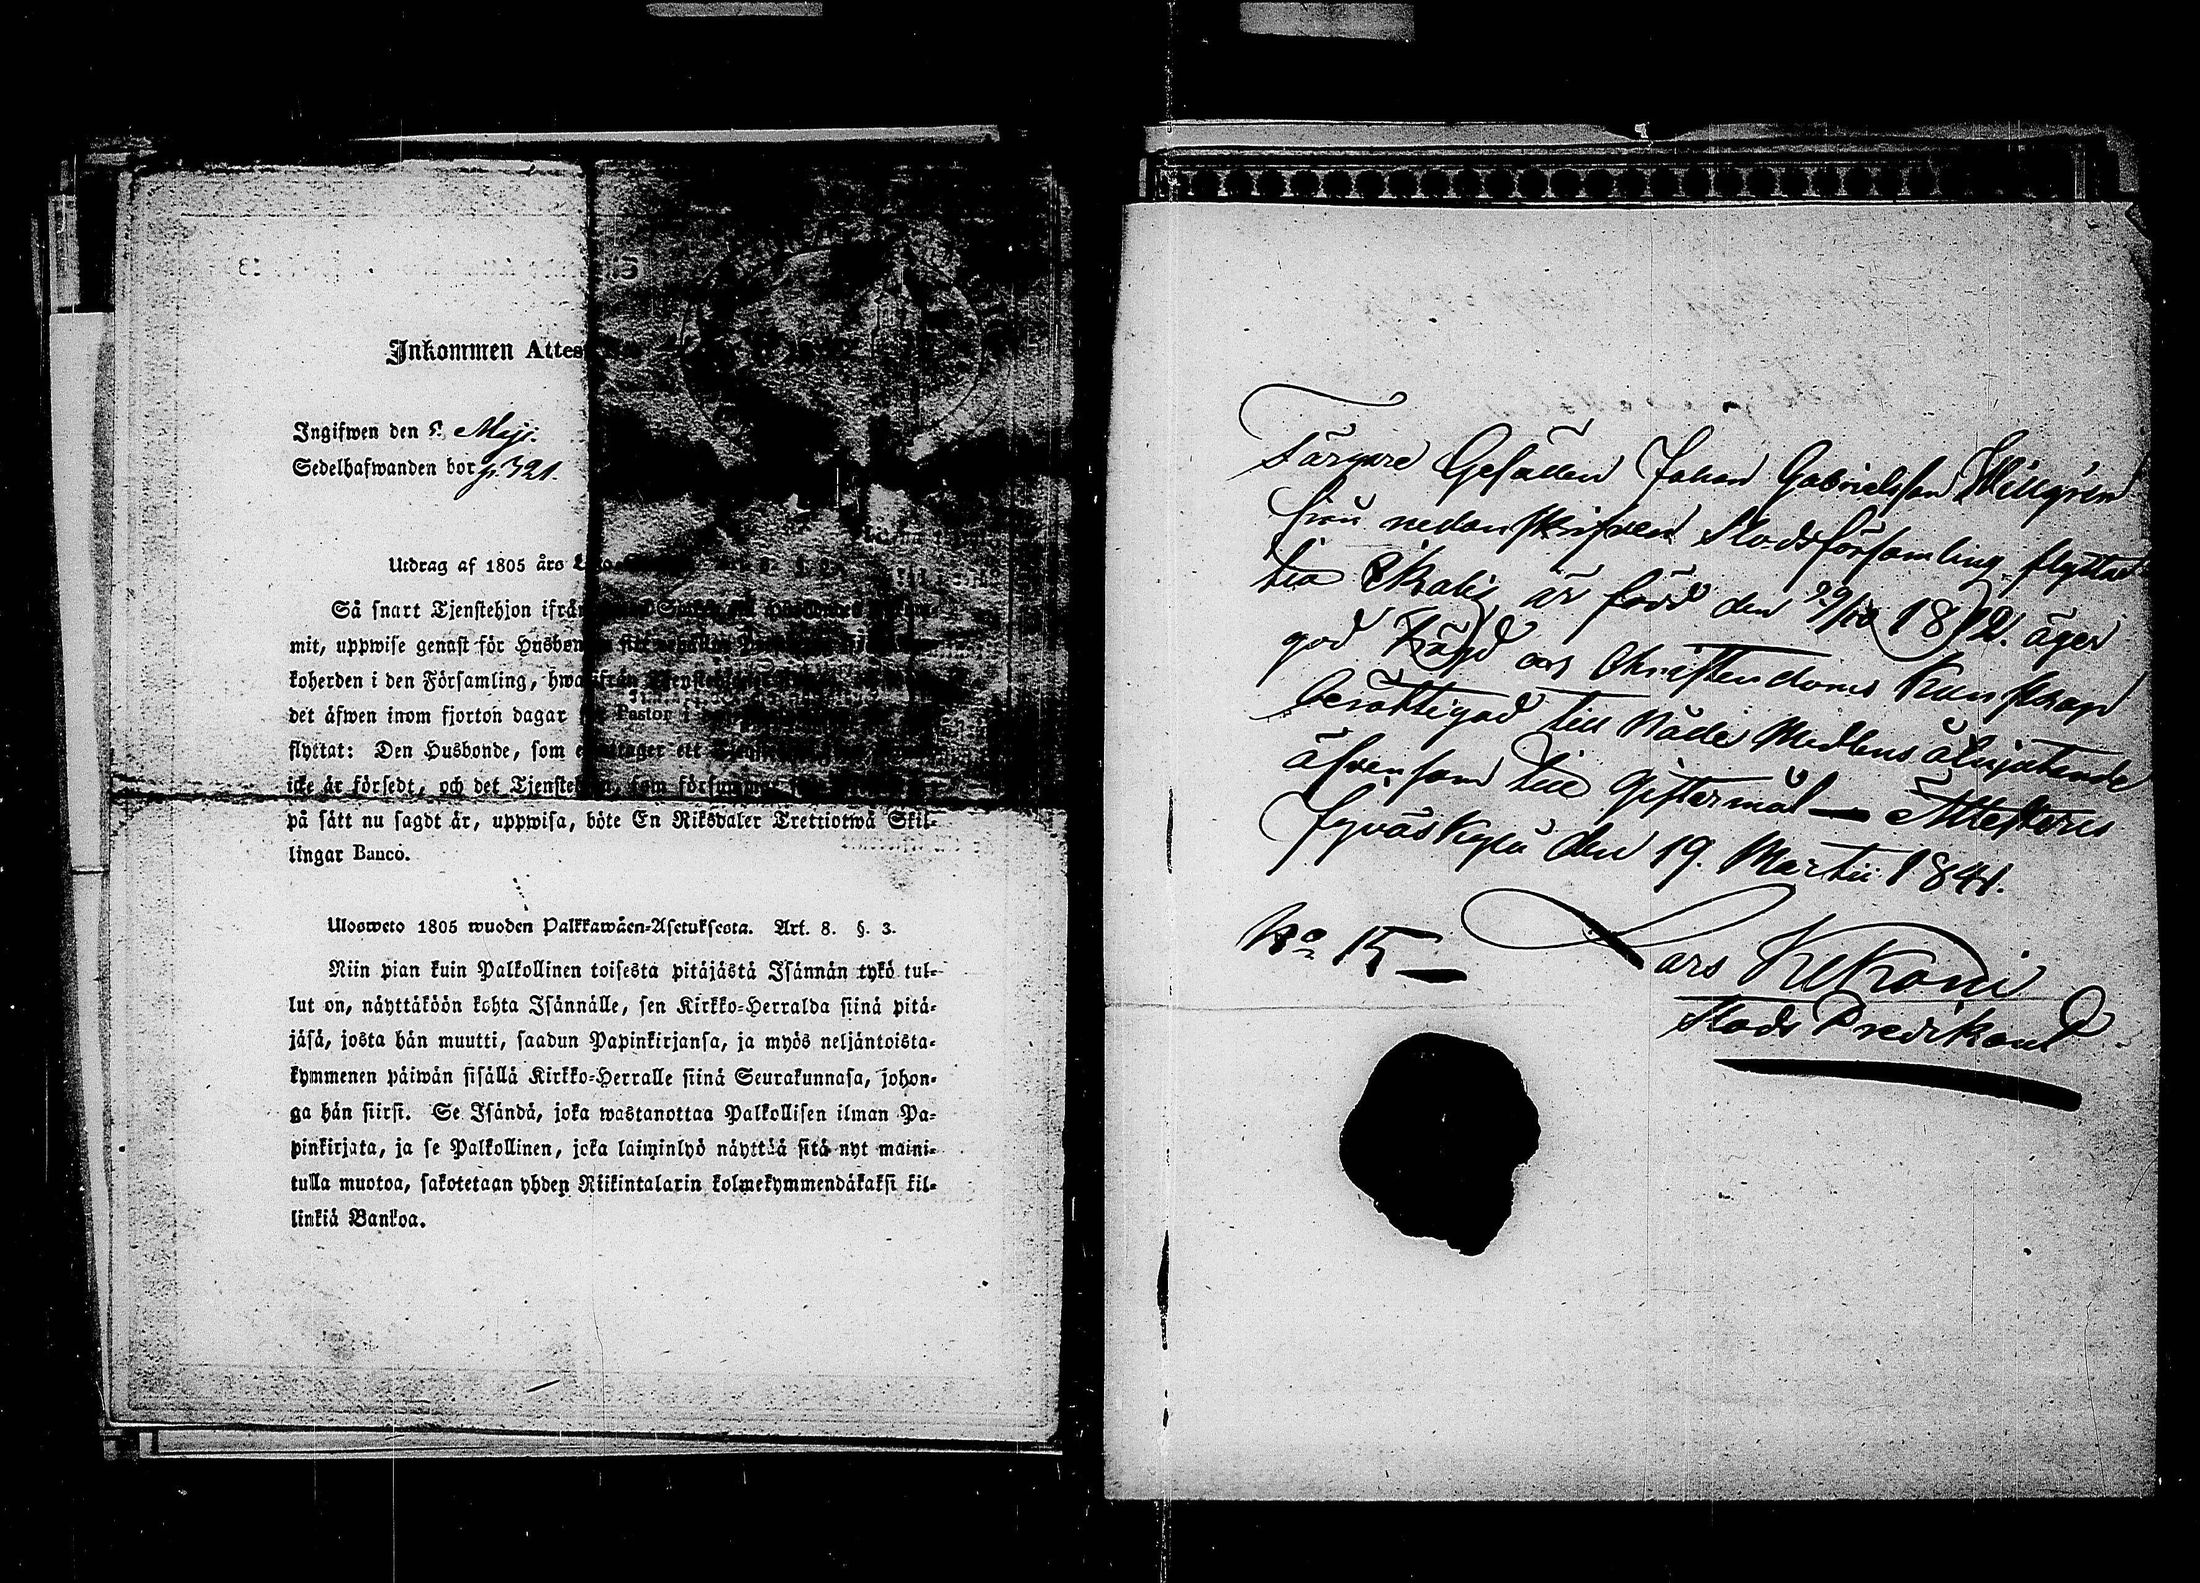 Inkommen Attes
Ingifwen den 8. Maji.
Sedelhafwanden bor p. 321.
Utdrag af 1805 års
Så snart Tjenstehjon ifrån
mit, uppwise genast för Husbon
koherden i den Församling, hwarifrån
det äfwen inom fjorton dagar Pastor i
flyttat: Den Husbonde, som ett
icke är försedt, och det Tjenstehjon, som försummar
på sätt nu sagdt är, uppwisa, böte En Riksdaler Trettiotwå Skil-
lingar Banco.
Ulosweto 1805 wuoden Palkkawäen-Asetuksesta. Art. 8. §. 3.
Niin pian kuin Palkollinen toisesta pitäjästä Isännän tykö tul-
lut on, näyttäköön kohta Isännälle, sen Kirkko-Herralda siinä pitä-
jäsä, josta hän muutti, saadun Papinkirjansa, ja myös neljäntoista-
kymmenen päiwän sisällä Kirkko-Herralle siinä Seurakunnasa, johon-
ga hän siirsi. Se Isändä, joka wastanottaa Palkollisen ilman Pa-
pinkirjata, ja se Palkollinen, joka laiminlyö näyttää sitä nyt maini-
tulla muotoa, sakotetaan yhden Riikintalarin kolmekymmendäkaksi kil-
linkiä Bankoa.
Färgare Gesällen Johan Gabrielsson Willgren
från nedanskrifven Stadsförsamling flyttar
till är född den 29/10 1812. äger
god Frägd och Christendoms Kunskap
berättigad till Nåde Medlens åtnjutande
äfvensom till Giftermål — Attesteras
Jyväskylä den 19. Martii 1841.
No 15 —
Lars Kekoni
Stads Predikant